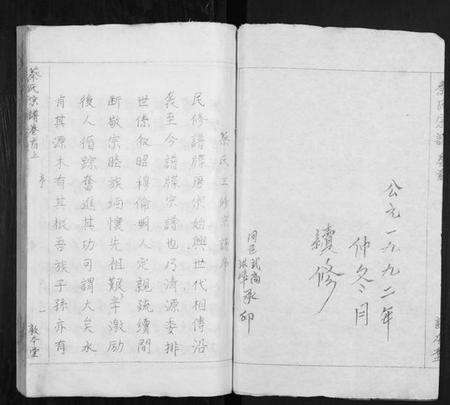 公元一九九二年
仲冬月
續修
蔡氏三修宗譜序
民修譜牒唐宋始興世代相傳沿
襲至今譜牒宗譜也乃清源委排
世係叙昭穆倫明人定親疏續間
斷敬宗睦族緬懷先祖艱辛激励
後人循踪奮進其功可謂大矣水
有其源木有其根吾族子孫亦有
蔡氏宗譜卷首上
序
一
敦本堂